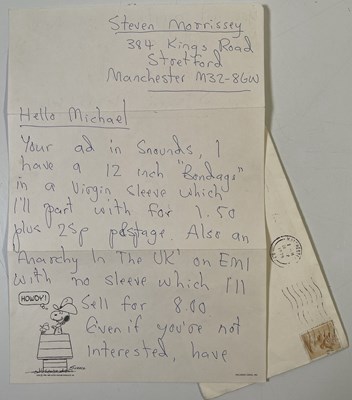 Steven Morrissey
384 Kings Road
Stretford
Manchester M32-8GW
Hello Michael
Your ad in Snounds, I
have a 12 inch "Bondage"
in a Virgin sleeve which
I'll part with for 1.50
plus 25p postage. Also an
'Anarchy In The UK' on EMI
with no sleeve which I'll
sell for 8.00
Even if you're not
interested, have
HOWDY!